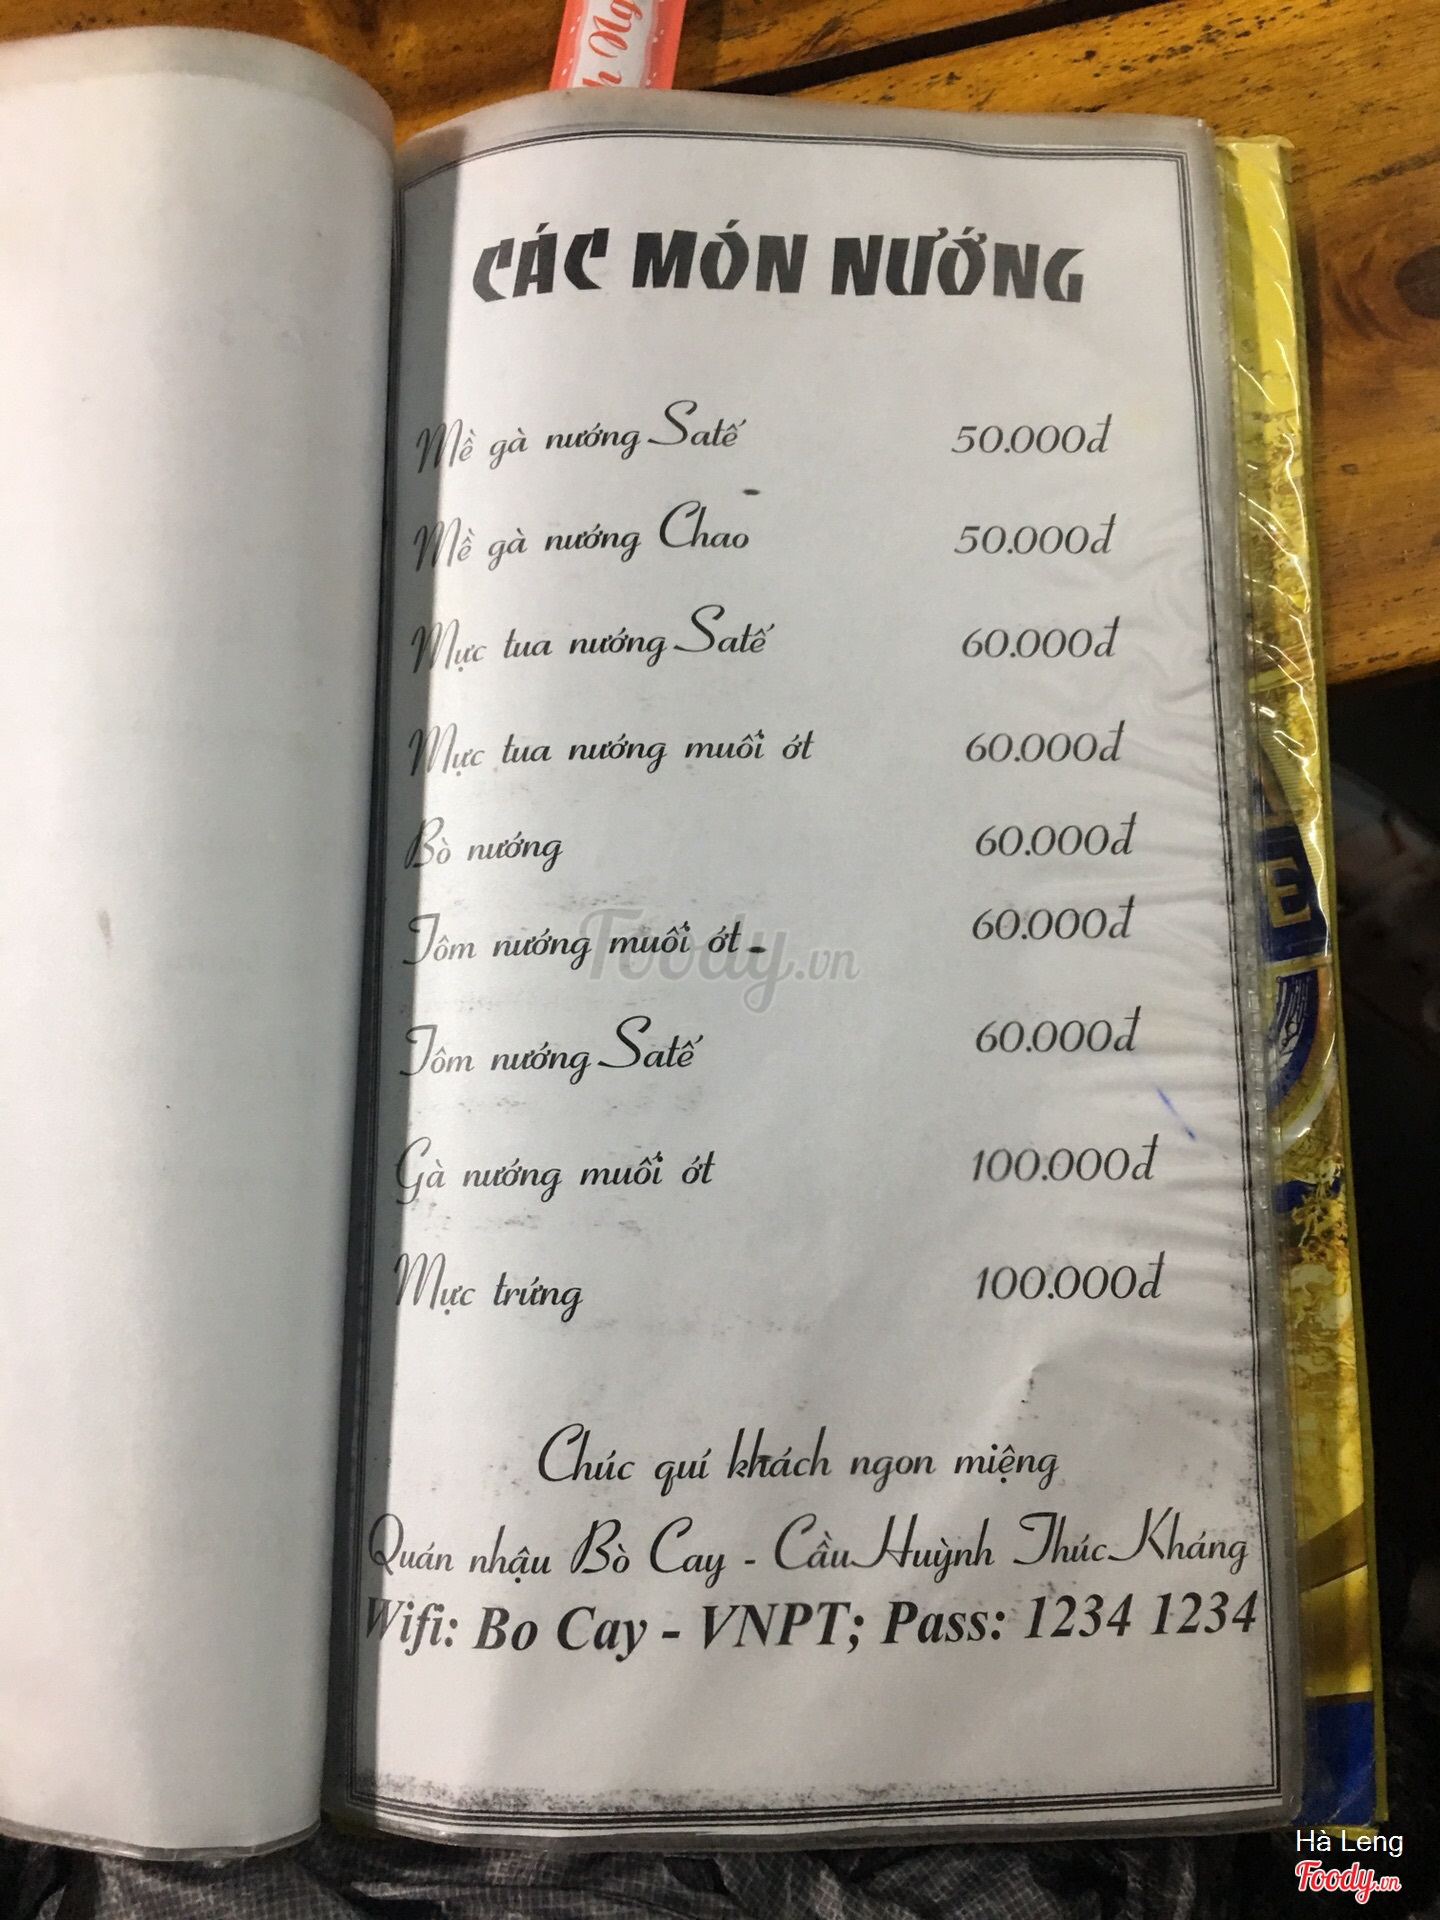 h Ng
CÁC MÓN NƯỚNG
Mề gà nướng Satế 50.000đ
Mề gà nướng Chao 50.000đ
Mực tua nướng Satế 60.000đ
Mực tua nướng muối ớt 60.000đ
Bò nướng 60.000đ
Tôm nướng muối ớt 60.000đ
Foody.vn
Tôm nướng Satế 60.000đ
Gà nướng muối ớt 100.000đ
Mực trứng 100.000đ
Chúc quí khách ngon miệng
Quán nhậu Bò Cay - Cầu Huỳnh Thúc Kháng
Wifi: Bo Cay - VNPT; Pass: 1234 1234
Hà Leng
Foody.vn